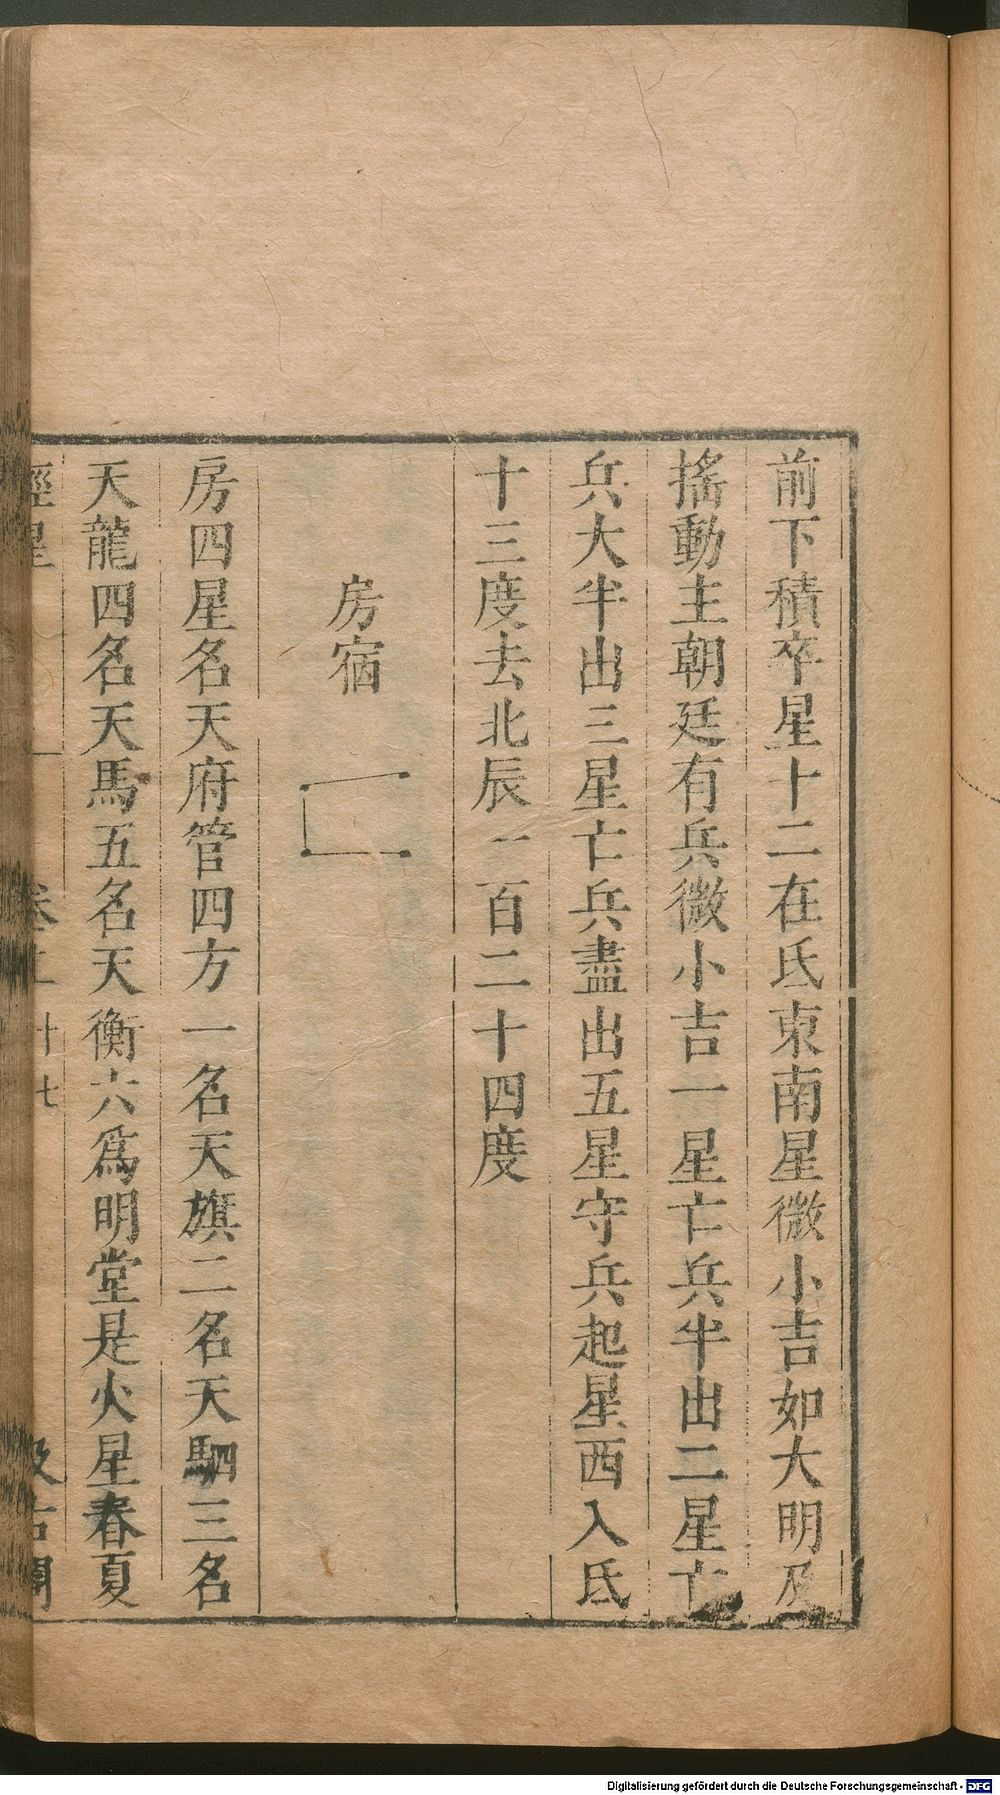 前下積卒星十二在氐東南星微小吉如大明及
搖動主朝廷有兵微小吉一星亡兵半出二星亡
兵大半出三星亡兵盡出五星守兵起星西入氐
十三度去北辰一百二十四度
房宿
房四星名天府管四方一名天旗二名天駟三名
天龍四名天馬五名天衡六爲明堂是火星春夏
經星
卷二
十七
汲古閣
Digitalisierung gefördert durch die Deutsche Forschungsgemeinschaft - DFG